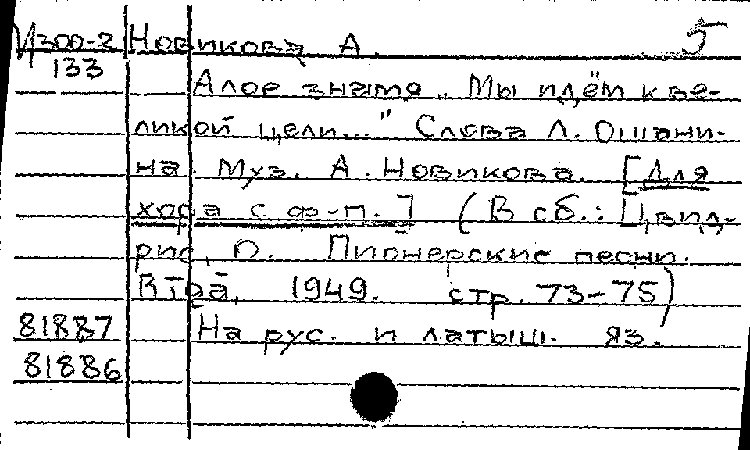 Изоо-2 Новикова А. 5
133
Алое знамя „Мы идём к ве-
ликой цели..." Слова Л. Ошани-
на Муз. А. Новикова. [Для
хора с ф-п.] (В сб.: Цвид-
рис, О. Пионерские песни.
1949. стр. 73-75)
81887 На рус. и латыш. яз.
81886